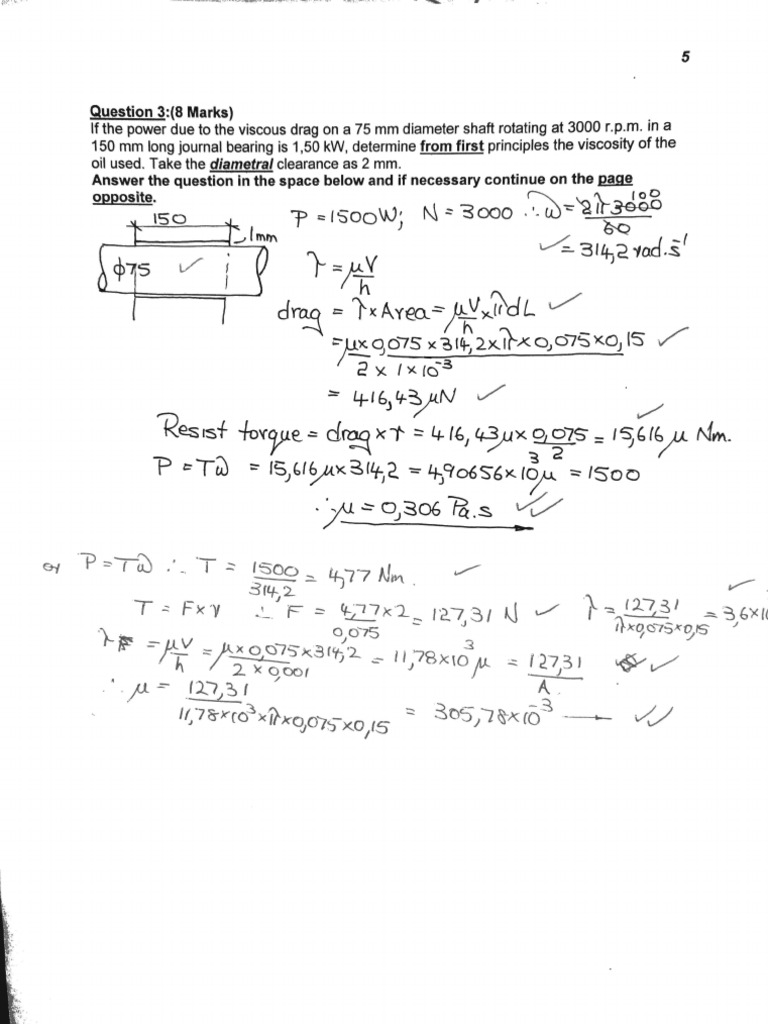 5
Question 3:(8 Marks)
If the power due to the viscous drag on a 75 mm diameter shaft rotating at 3000 r.p.m. in a
150 mm long journal bearing is 1,50 kW, determine from first principles the viscosity of the
oil used. Take the diametral clearance as 2 mm.
Answer the question in the space below and if necessary continue on the page
opposite.
150
1mm
φ75 ✓
P = 1500W; N = 3000 ∴ ω = 2π3000/60 100
✓ = 314,2 rad.s⁻¹
τ = μV/h
drag = τ × Area = μV/h × πdL ✓
= μ×0,075×314,2×π×0,075×0,15 / 2×1×10⁻³ ✓
= 416,43 μN ✓
Resist torque = drag×r = 416,43μ×0,075/2 = 15,616 μ Nm. ✓
P = Tω = 15,616μ×314,2 = 4,90656×10³μ = 1500
∴ μ = 0,306 Pa.s ✓✓
or P = Tω ∴ T = 1500/314,2 = 4,77 Nm. ✓
T = F×r ∴ F = 4,77×2/0,075 = 127,31 N ✓ τ = 127,31/π×0,075×0,15 = 3,6×10 ✓
τ = μV/h = μ×0,075×314,2/2×0,001 = 11,78×10³ μ = 127,31/A. ✓
∴ μ = 127,31/11,78×10³×π×0,075×0,15 = 305,78×10⁻³ ✓✓